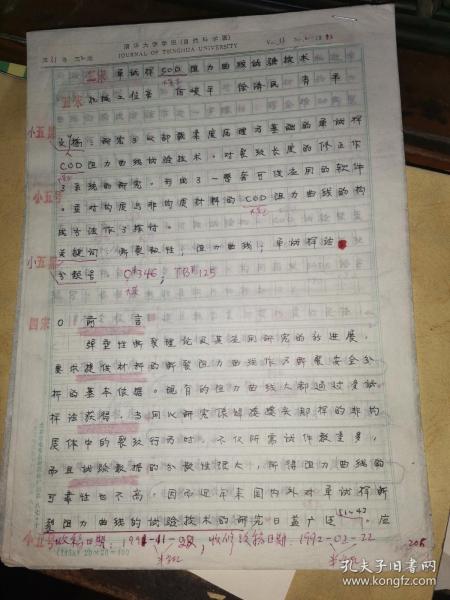 清华大学学报(自然科学版)
JOURNAL OF TSINGHUA UNIVERSITY
二宋 单试样COD阻力曲线试验技术
五宋 机械工程系
小五黑 摘 研究了以卸载柔度原理为基础的单试样
COD阻力曲线试验技术,对裂纹长度的修正作
了系统的研究,
小五号 并对均质与非均质材料的COD阻力曲线的构
成方法作了探讨。
小五黑 关键词 断裂韧性;阻力曲线;单试样法
分类号 O346; TB125
四宋 0 前言
弹塑性断裂理论及其应用研究的新进展,
要求提供材料的断裂阻力曲线作为断裂安全分
析的基本依据。现有的阻力曲线大都通过多试
样法获得。当用以研究像焊接接头那样的非均
质体中的裂纹行为时,不仅所需试件数量多,
而且试验数据的分散性很大,所得阻力曲线的
可靠性也不高,因而近年来国内外对单试样断
裂阻力曲线的试验技术的研究日益广泛。应
小五号 收稿日期: 收修改稿日期:1992-02-22
20×20=400
孔夫子旧书网